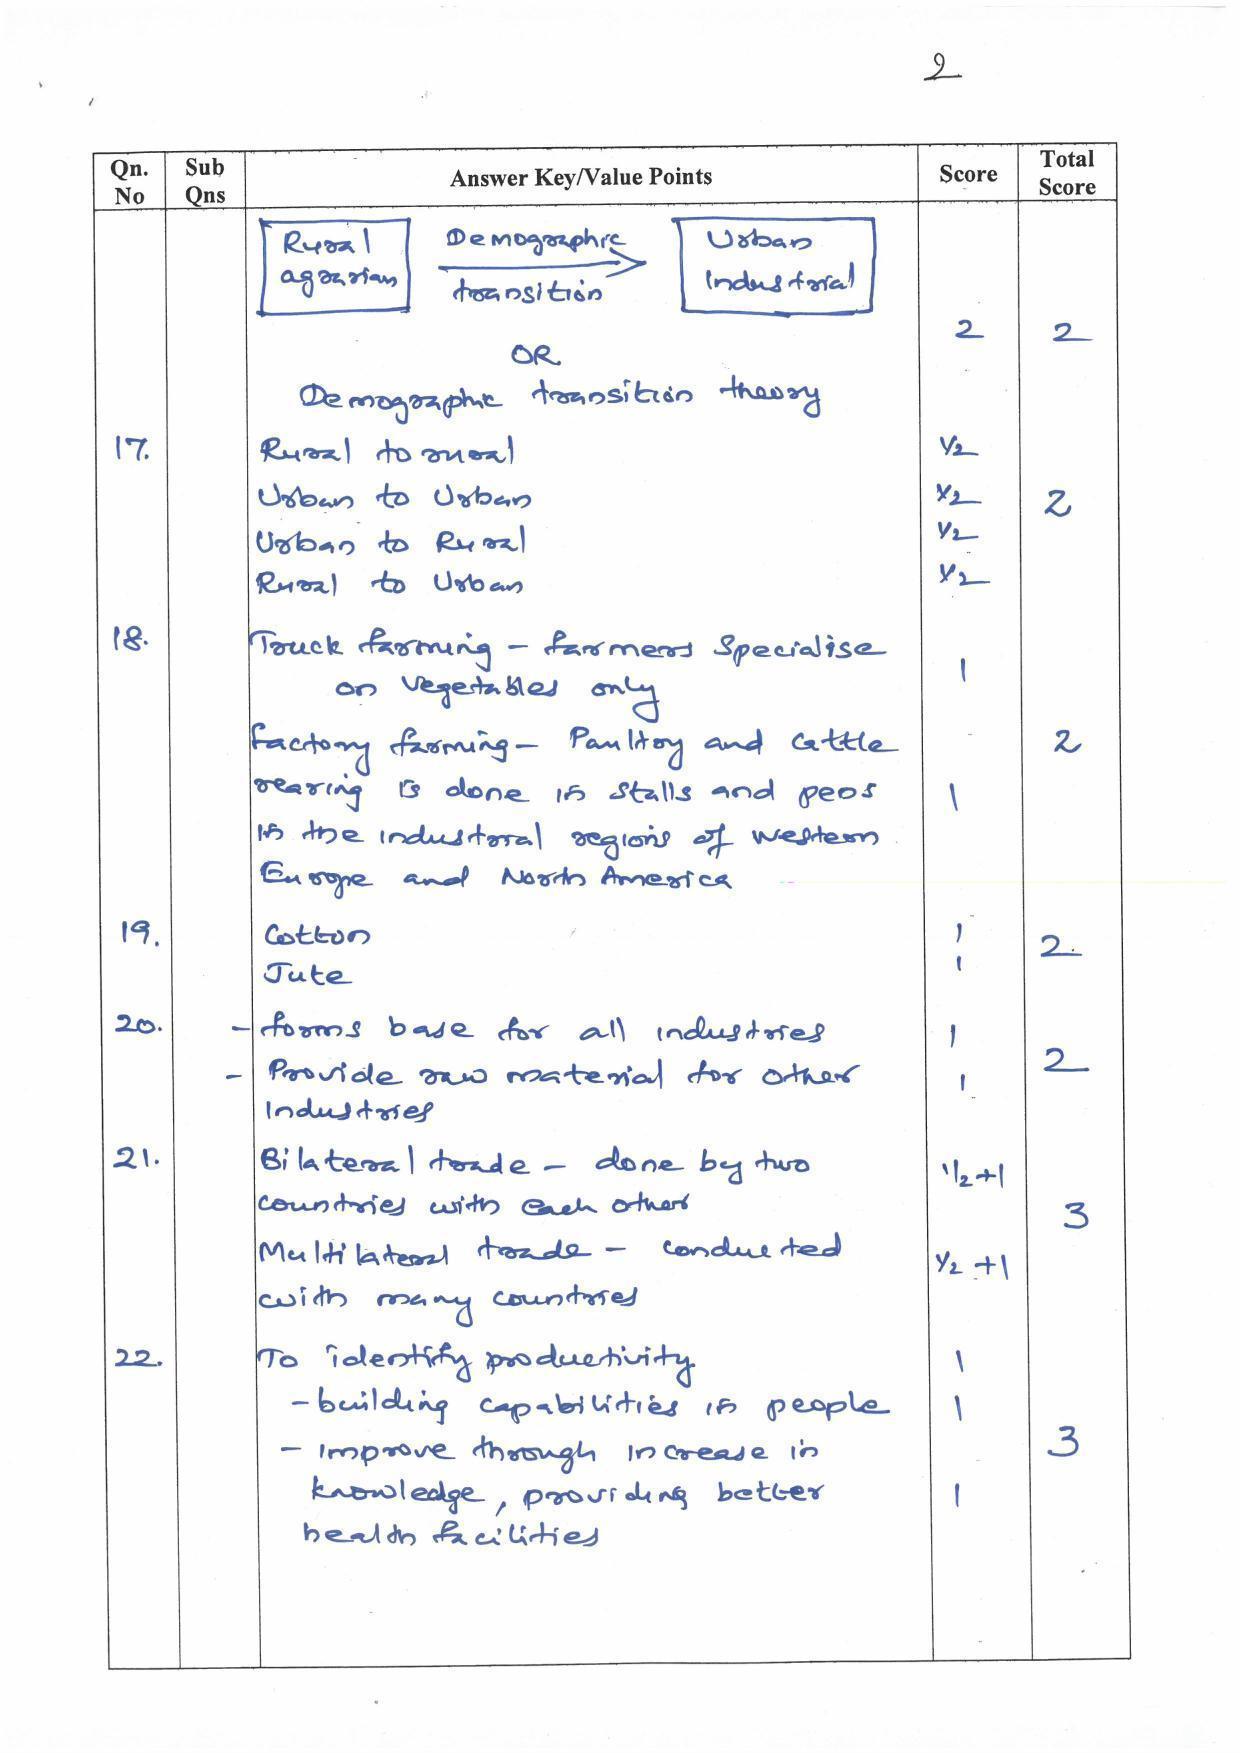 2
Qn. No | Sub Qns | Answer Key/Value Points | Score | Total Score
Rural agrarian | Demographic transition | Urban Industrial
2 | 2
OR
Demographic transition theory
17. Rural to rural ½
Urban to Urban ½ 2
Urban to Rural ½
Rural to Urban ½
18. Truck farming – farmers Specialise
on vegetables only 1
factory farming – Paultry and Cattle 2
rearing is done in stalls and pens 1
in the industrial regions of western
Europe and North America
19. Cotton 1 2.
Jute 1
20. – forms base for all industries 1
– Provide raw material for other 1 2
Industries
21. Bilateral trade – done by two ½+1
countries with each other 3
Multilateral trade – conducted ½+1
with many countries
22. To identify productivity. 1
– building capabilities in people 1
– improve through increase in 3
knowledge, providing better 1
health facilities